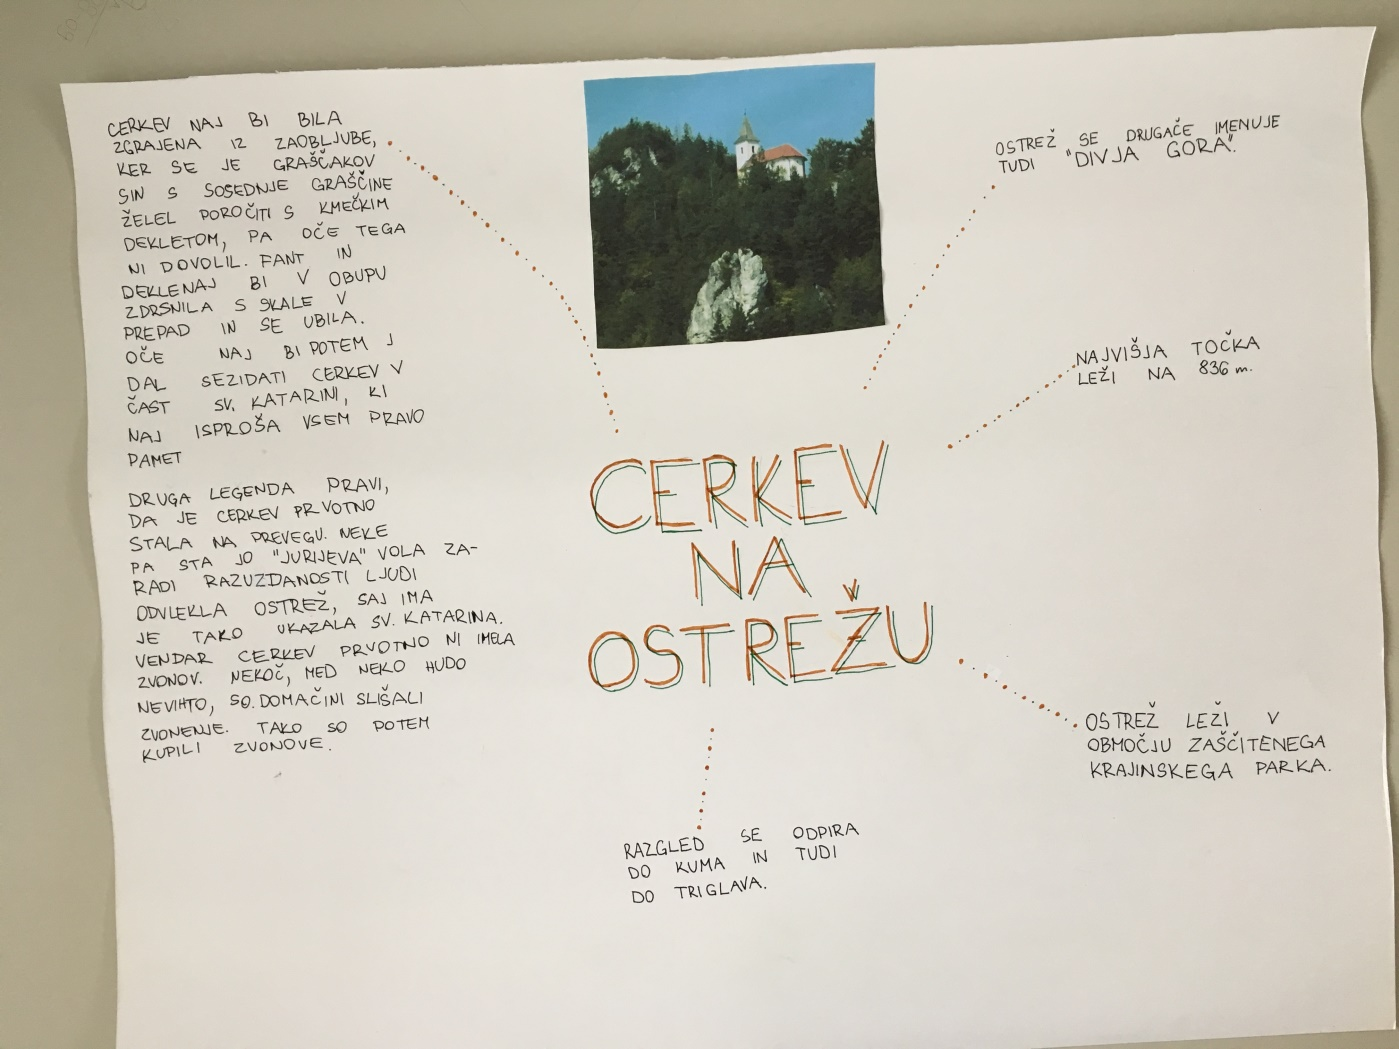 CERKEV NAJ BI BILA
ZGRAJENA IZ ZAOBLJUBE,
KER SE JE GRAŠČAKOV
SIN S SOSEDNJE GRAŠČINE
ŽELEL POROČITI S KMEČKIM
DEKLETOM, PA OČE TEGA
NI DOVOLIL. FANT IN
DEKLENAJ BI V OBUPU
ZDRSNILA S SKALE V
PREPAD IN SE UBILA.
OČE NAJ BI POTEM J
DAL SEZIDATI CERKEV V
ČAST SV. KATARINI, KI
NAJ ISPROŠA VSEM PRAVO
PAMET
DRUGA LEGENDA PRAVI,
DA JE CERKEV PRVOTNO
STALA NA PREVEGU. NEKE
PA STA JO "JURIJEVA" VOLA ZA-
RADI RAZUZDANOSTI LJUDI
ODVLEKLA OSTREŽ, SAJ IMA
JE TAKO UKAZALA SV. KATARINA.
VENDAR CERKEV PRVOTNO NI IMELA
ZVONOV. NEKOČ, MED NEKO HUDO
NEVIHTO, SO DOMAČINI SLIŠALI
ZVONENJE. TAKO SO POTEM
KUPILI ZVONOVE.
OSTREŽ SE DRUGAČE IMENUJE
TUDI "DIVJA GORA".
NAJVIŠJA TOČKA
LEŽI NA 836 m.
CERKEV
NA
OSTREŽU
OSTREŽ LEŽI V
OBMOČJU ZAŠČITENEGA
KRAJINSKEGA PARKA.
RAZGLED SE ODPIRA
DO KUMA IN TUDI
DO TRIGLAVA.